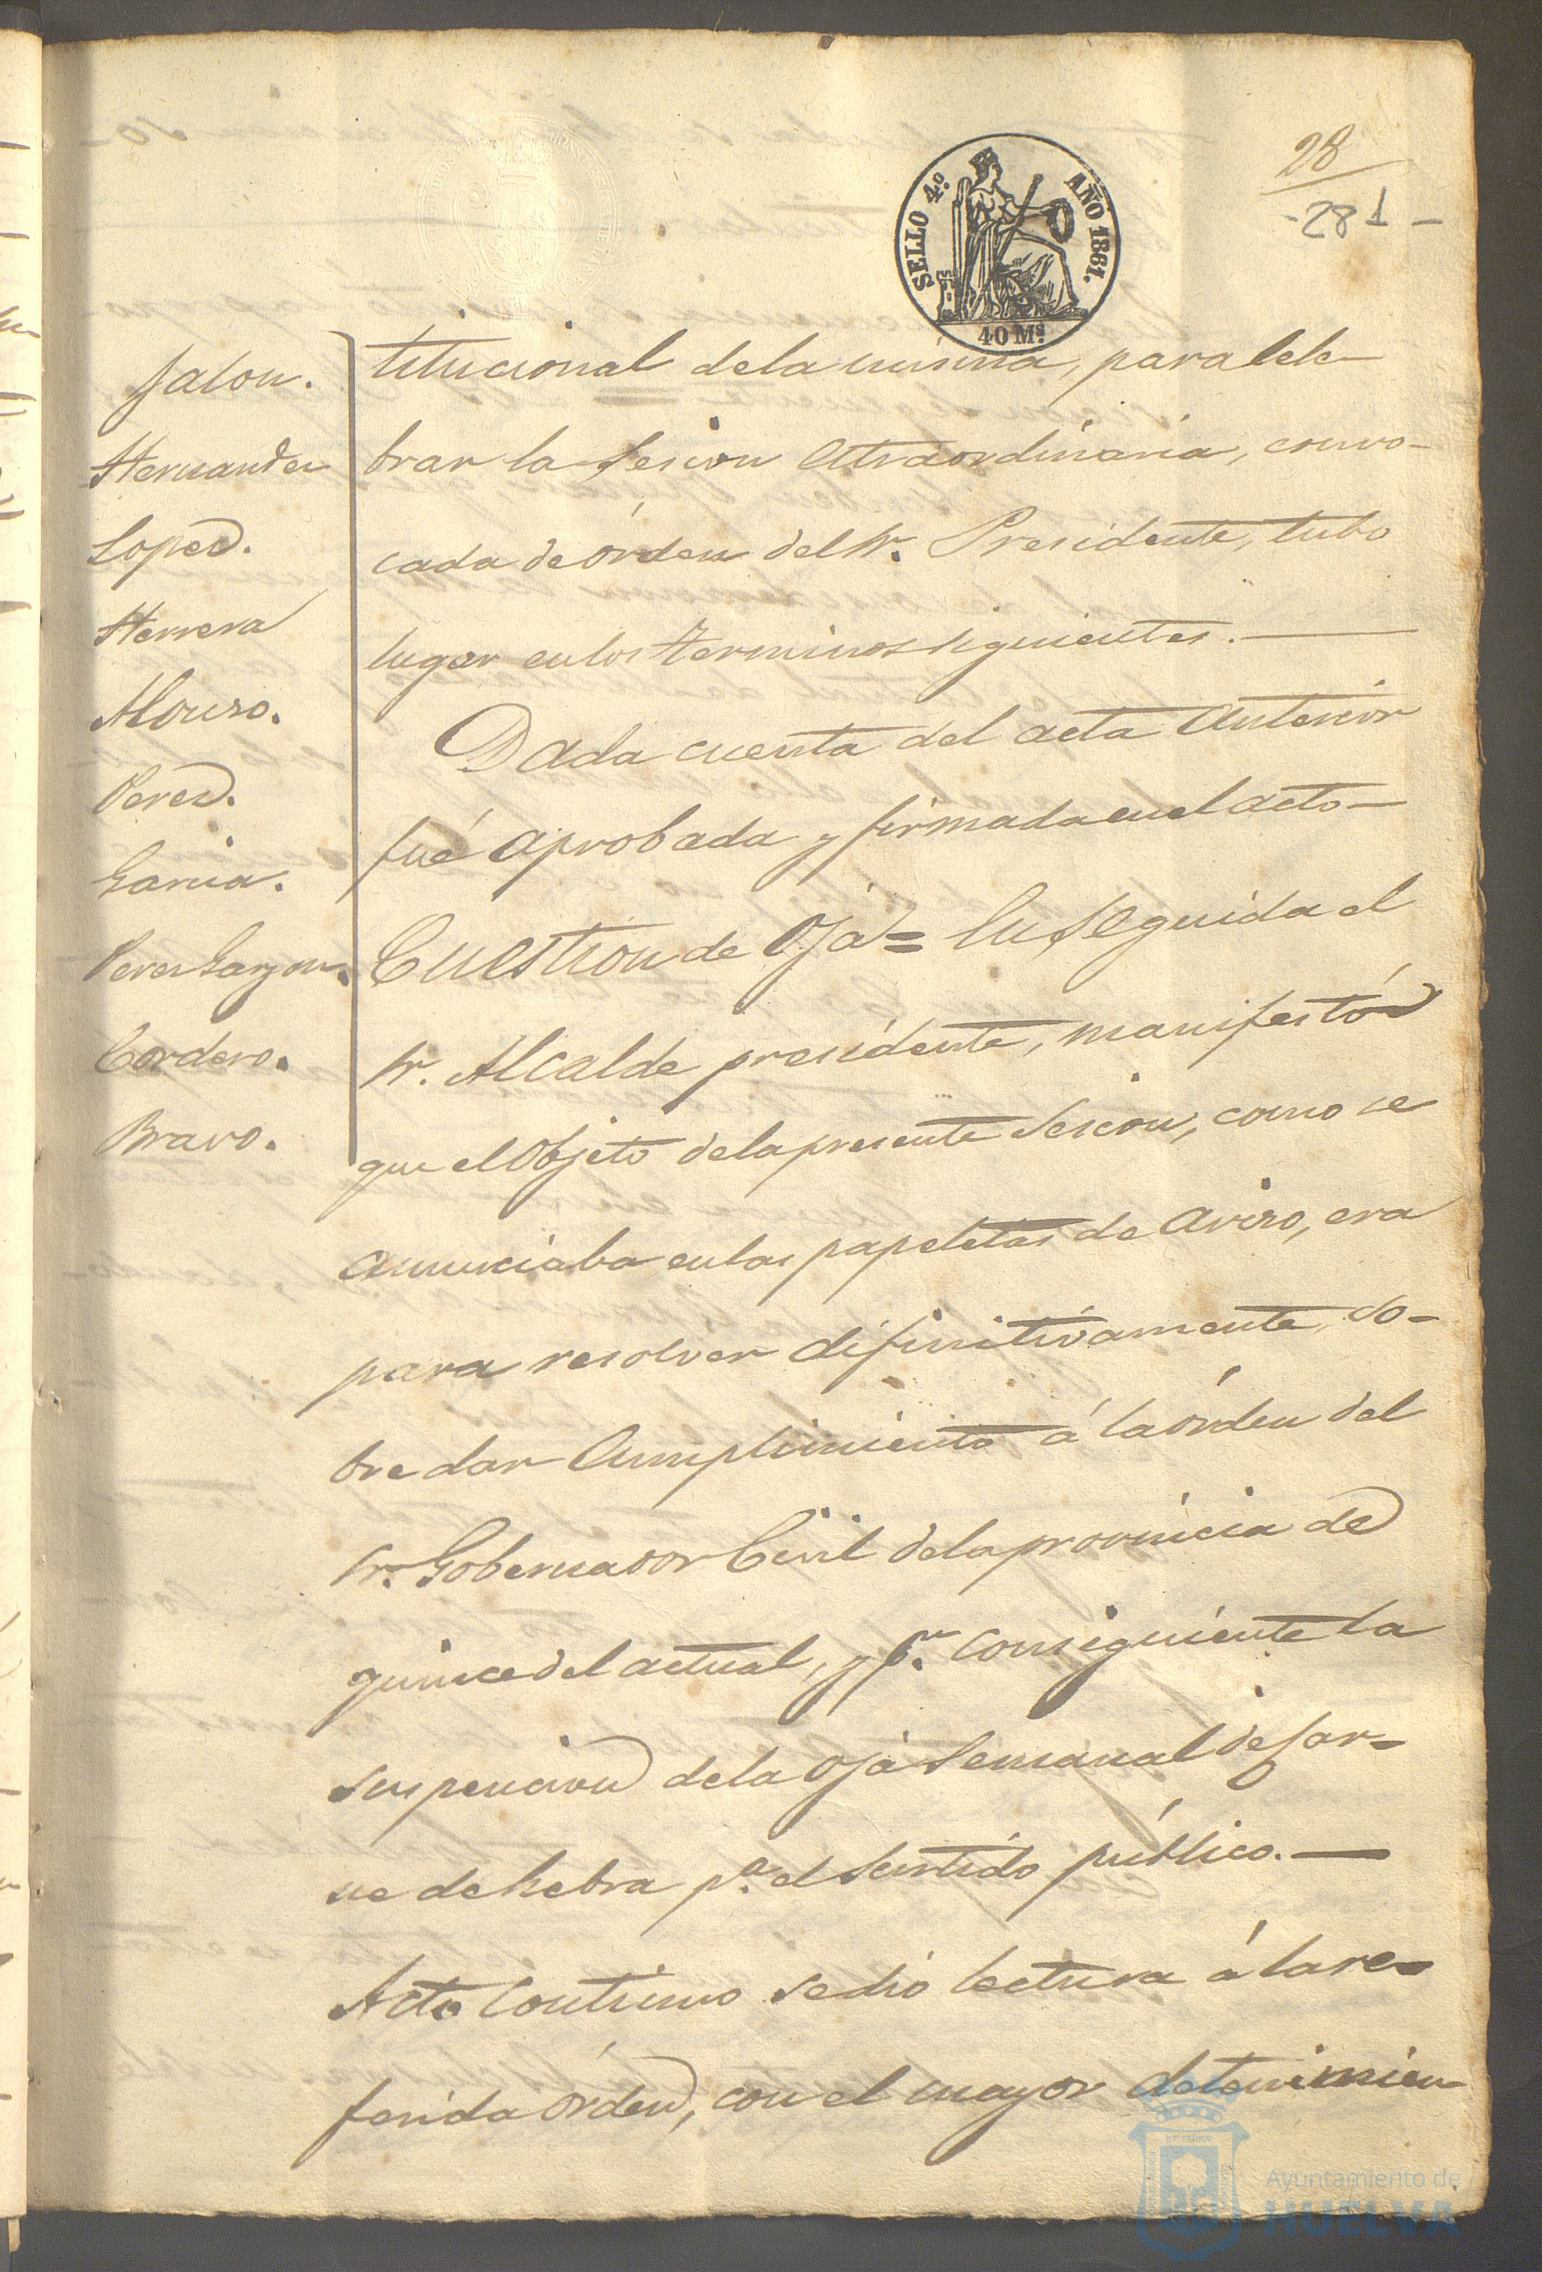 28
-281-
SELLO 4º. AÑO 1861.
40 Ms.
Jalon.
Hernandez
Loped.
Herrera
Alonso.
Pered.
Garcia.
Peres Garzon.
Cordero.
Bravo.
titucional dela misma, para cele-
brar la Sesion estraordinaria, convo-
cada de órden del Sr. Presidente, tubo
lugar en los terminos siguientes.
Dada cuenta del acta anterior
fué aprobada y firmada en el acto-
Cuestion de Oja = En seguida el
Sr. Alcalde presidente, manifestó
que el objeto dela presente Sesion, como se
anunciaba en las papeletas de aviso, era
para resolver difinitivamente, so-
bre dar Cumplimiento á la órden del
Sr. Gobernador Civil dela provincia de
quince del actual, y pr. consiguiente la
suspencion dela Oja Semanal de
pa. el Surtido público.
Acto continuo se dió lectura á la re-
ferida órden, con el mayor detenimien-
Ayuntamiento de
HUELVA